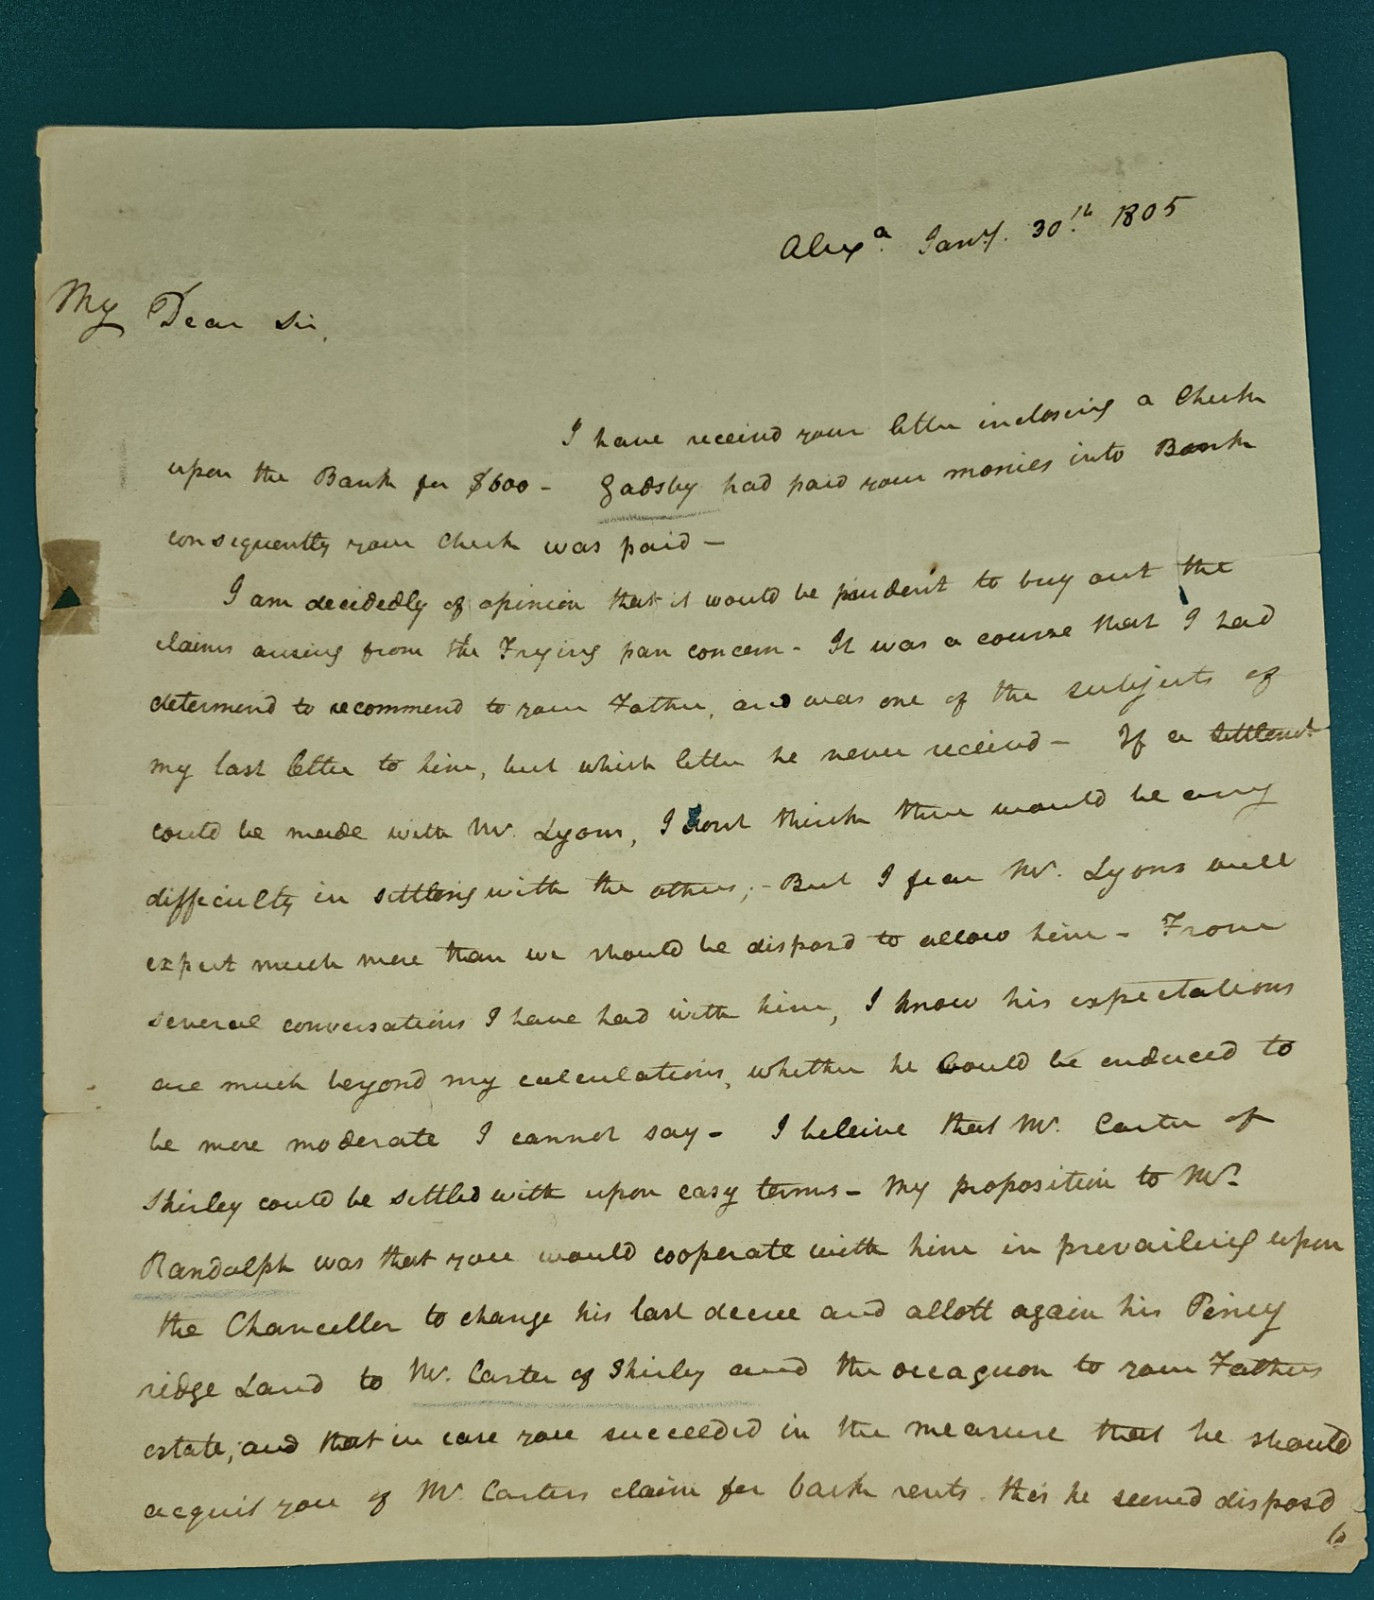 Alexa. Jany. 30th. 1805
My Dear Sir,
I have receivd your letter inclosing a Check
upon the Bank for $600 - Gadsby had paid your monies into Bank
consequently your Check was paid -
I am decidedly of opinion that it would be prudent to buy out the
claims arising from the Frying pan concern - It was a course that I had
determend to recommend to your Father, and was one of the subjects of
my last letter to him, but which letter he never receivd - If a settlemt.
could be made with Mr. Lyons, I dont think there would be any
difficulty in settling with the others; - But I fear Mr. Lyons will
expect much more than we should be disposd to allow him - From
several conversations I have had with him, I know his expectations
are much beyond my calculations, whether he could be enduced to
be more moderate I cannot say - I beleive that Mr. Carter of
Shirley could be settled with upon easy terms - My proposition to Mr.
Randolph was that you would cooperate with him in prevailing upon
the Chancellor to change his last decree and allott again his Piney
ridge Land to Mr. Carter of Shirley and the occaquon to your Fathers
estate; and that in case you succeeded in the measure that he should
acquit you of Mr. Carters claim for back rents. this he seemed disposd
to